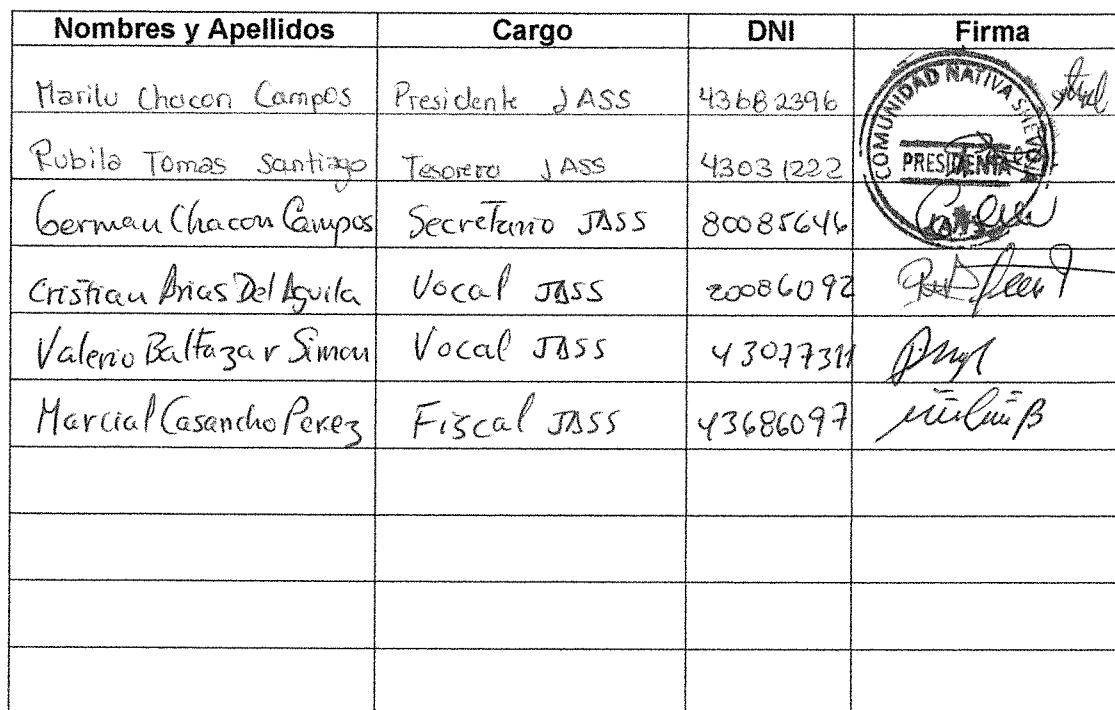 Nombres y Apellidos Cargo DNI Firma
Marilu Chacon Campos Presidente JASS 43682396
Rubila Tomas Santiago Tesorero JASS 43031222
German Chacon Campos Secretario JASS 80085646
Cristian Arias Del Aguila Vocal JASS 20086092
Valerio Baltazar Simon Vocal JASS 43077311
Marcial Casancho Perez Fiscal JASS 43686097
COMUNIDAD NATIVA
PRESIDENTA